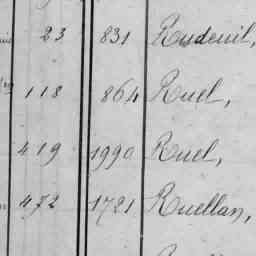 23 831 Rudeuil,
118 864 Ruel,
419 1990 Ruel,
472 1721 Ruellan,